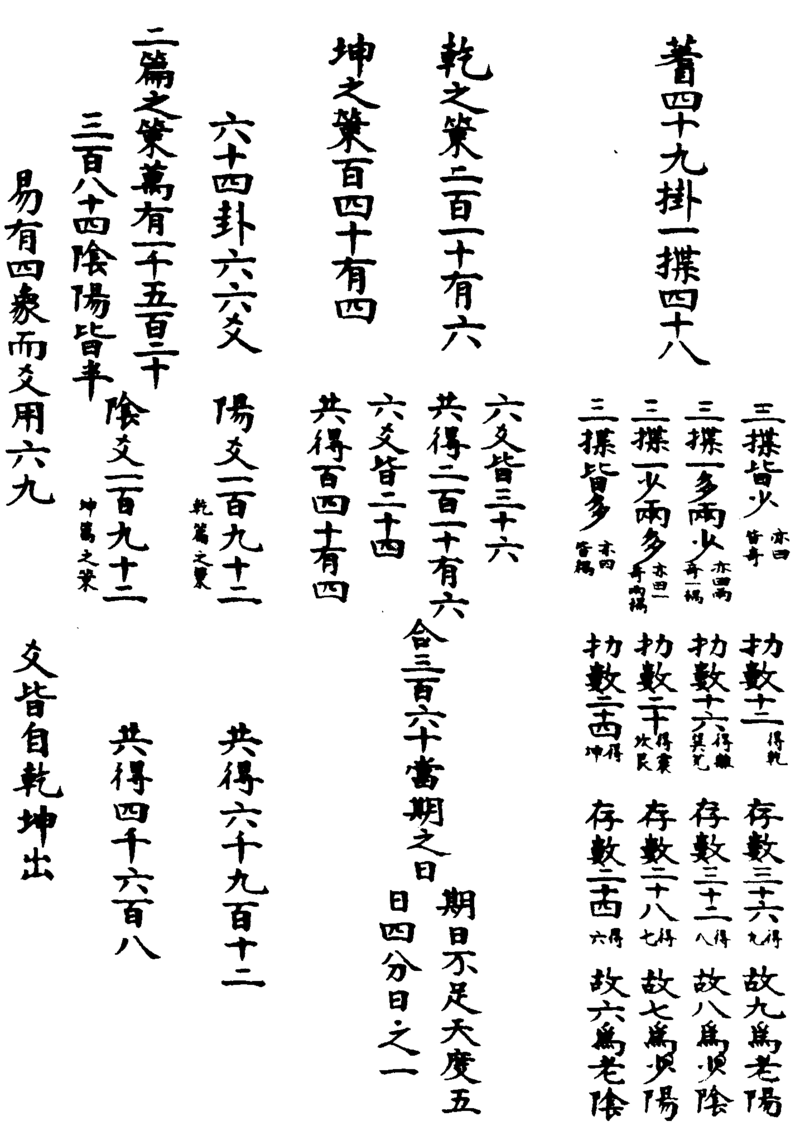 蓍四十九掛一揲四十八
三揲皆少
亦曰
皆奇
扐數十二
得乾
存數三十六
得
九
故九爲老陽
三揲一多兩少
亦曰兩
奇一耦
扐數十六
得離
巽兌
存數三十二
得
八
故八爲少陰
三揲一少兩多
亦曰一
奇兩耦
扐數二十
得震
坎艮
存數二十八
得
七
故七爲少陽
三揲皆多
亦曰
皆耦
扐數二十四
得
坤
存數二十四
得
六
故六爲老陰
乾之策二百一十有六
六爻皆三十六
共得二百一十有六
坤之策百四十有四
六爻皆二十四
共得百四十有四
合三百六十當期之日
期日不足天度五
日四分日之一
六十四卦六六爻
陽爻一百九十二
乾篇之策
共得六千九百十二
二篇之策萬有一千五百二十
三百八十四陰陽皆半
陰爻一百九十二
坤篇之策
共得四千六百八
易有四象而爻用六九
爻皆自乾坤出